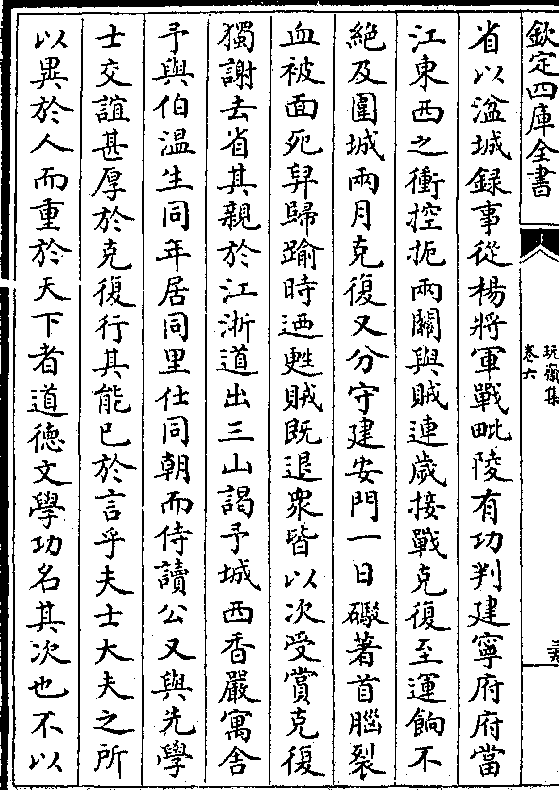 欽定四庫全書
玩齋集
卷六
省以湓城録事從楊將軍戰毗陵有功判建寧府府當
江東西之衝控扼兩關與賊連歲接戰克復至運餉不
絶及圍城兩月克復又分守建安門一日礮著首腦裂
血被面死舁歸踰時迺甦賊既退衆皆以次受賞克復
獨謝去省其親於江浙道出三山謁予城西香嚴寓舍
予與伯温生同年居同里仕同朝而侍讀公又與先學
士交誼甚厚於克復行其能已於言乎夫士大夫之所
以異於人而重於天下者道徳文學功名其次也不以